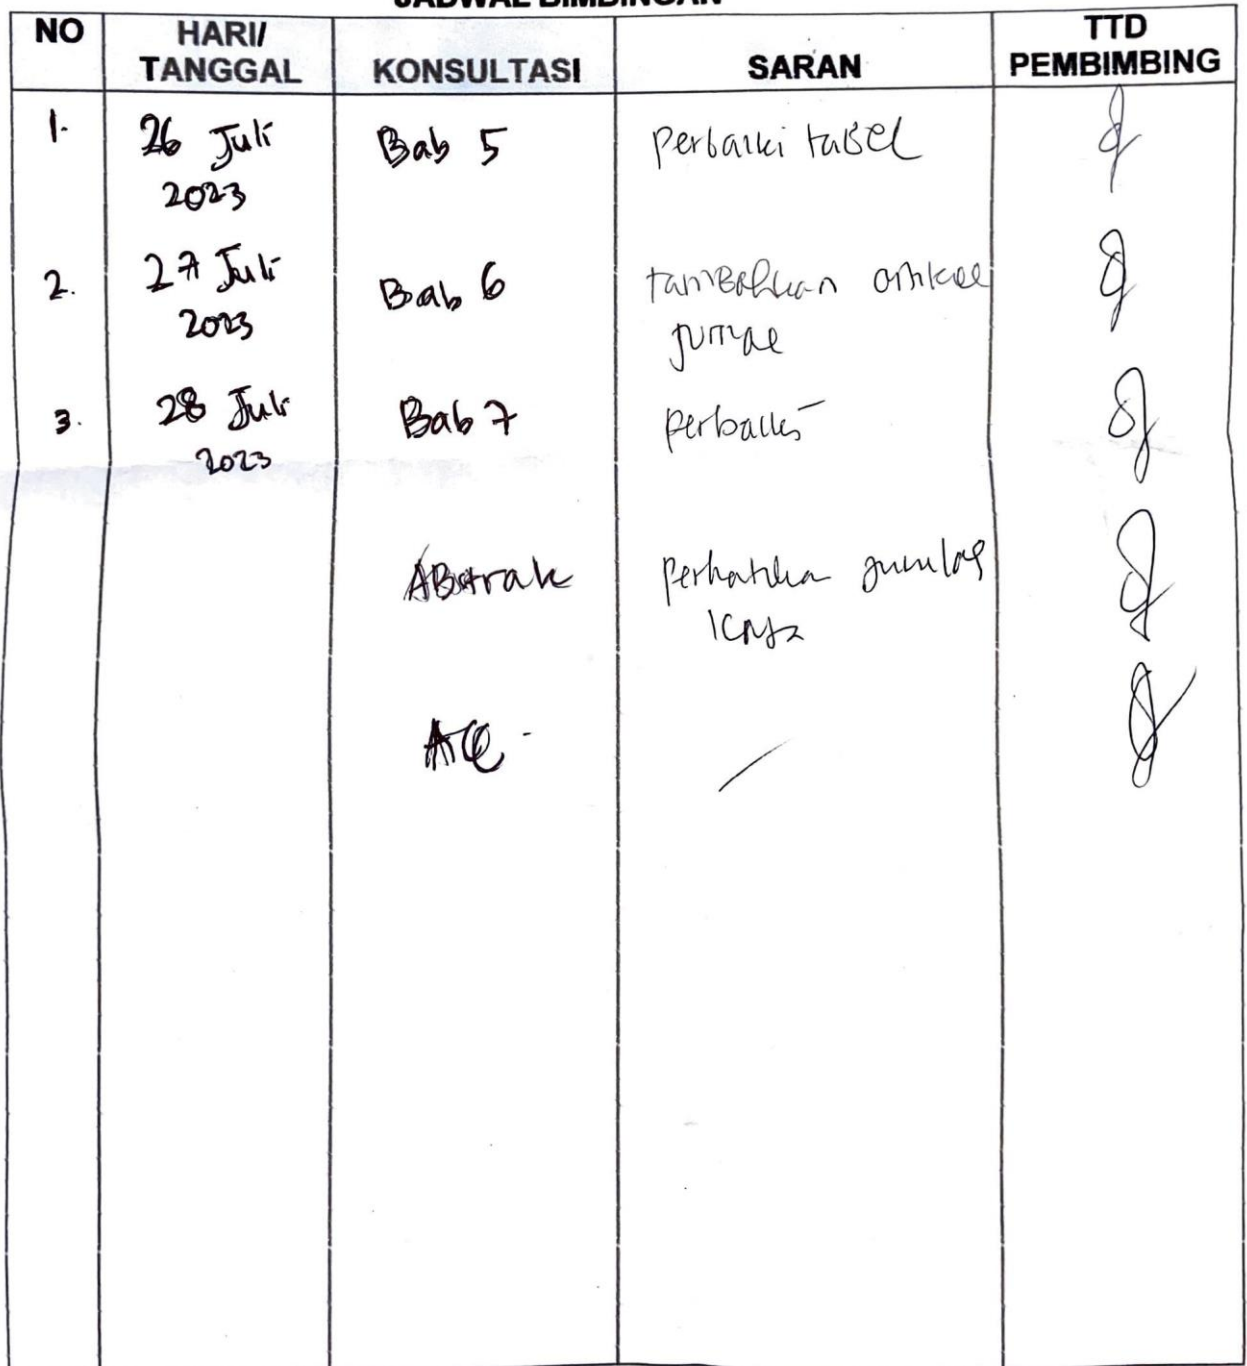 JADWAL BIMBINGAN
NO HARI/ TANGGAL KONSULTASI SARAN TTD PEMBIMBING
1. 26 Juli Bab 5 Perbaiki tabel
2023
2. 27 Juli Bab 6 tambahkan artikel
2023 jurnal
3. 28 Juli Bab 7 perbaiki
2023
ABstrak Perhatika jumlah
kata
ACC